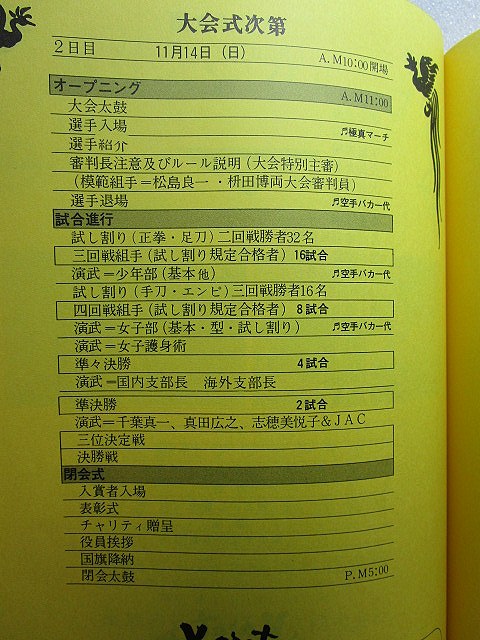 大会式次第
2日目 11月14日(日) A.M10:00開場
オープニング A.M11:00
大会太鼓
選手入場 ♬極真マーチ
選手紹介
審判長注意及びルール説明(大会特別主審)
(模範組手=松島良一・枡田博両大会審判員)
選手退場 ♬空手バカ一代
試合進行
試し割り(正拳・足刀)二回戦勝者32名
三回戦組手(試し割り規定合格者) 16試合
演武=少年部(基本他) ♬空手バカ一代
試し割り(手刀・エンピ)三回戦勝者16名
四回戦組手(試し割り規定合格者) 8試合
演武=女子部(基本・型・試し割り) ♬空手バカ一代
演武=女子護身術
準々決勝 4試合
演武=国内支部長 海外支部長
準決勝 2試合
演武=千葉真一、真田広之、志穂美悦子&JAC
三位決定戦
決勝戦
閉会式
入賞者入場
表彰式
チャリティ贈呈
役員挨拶
国旗降納
閉会太鼓 P.M5:00